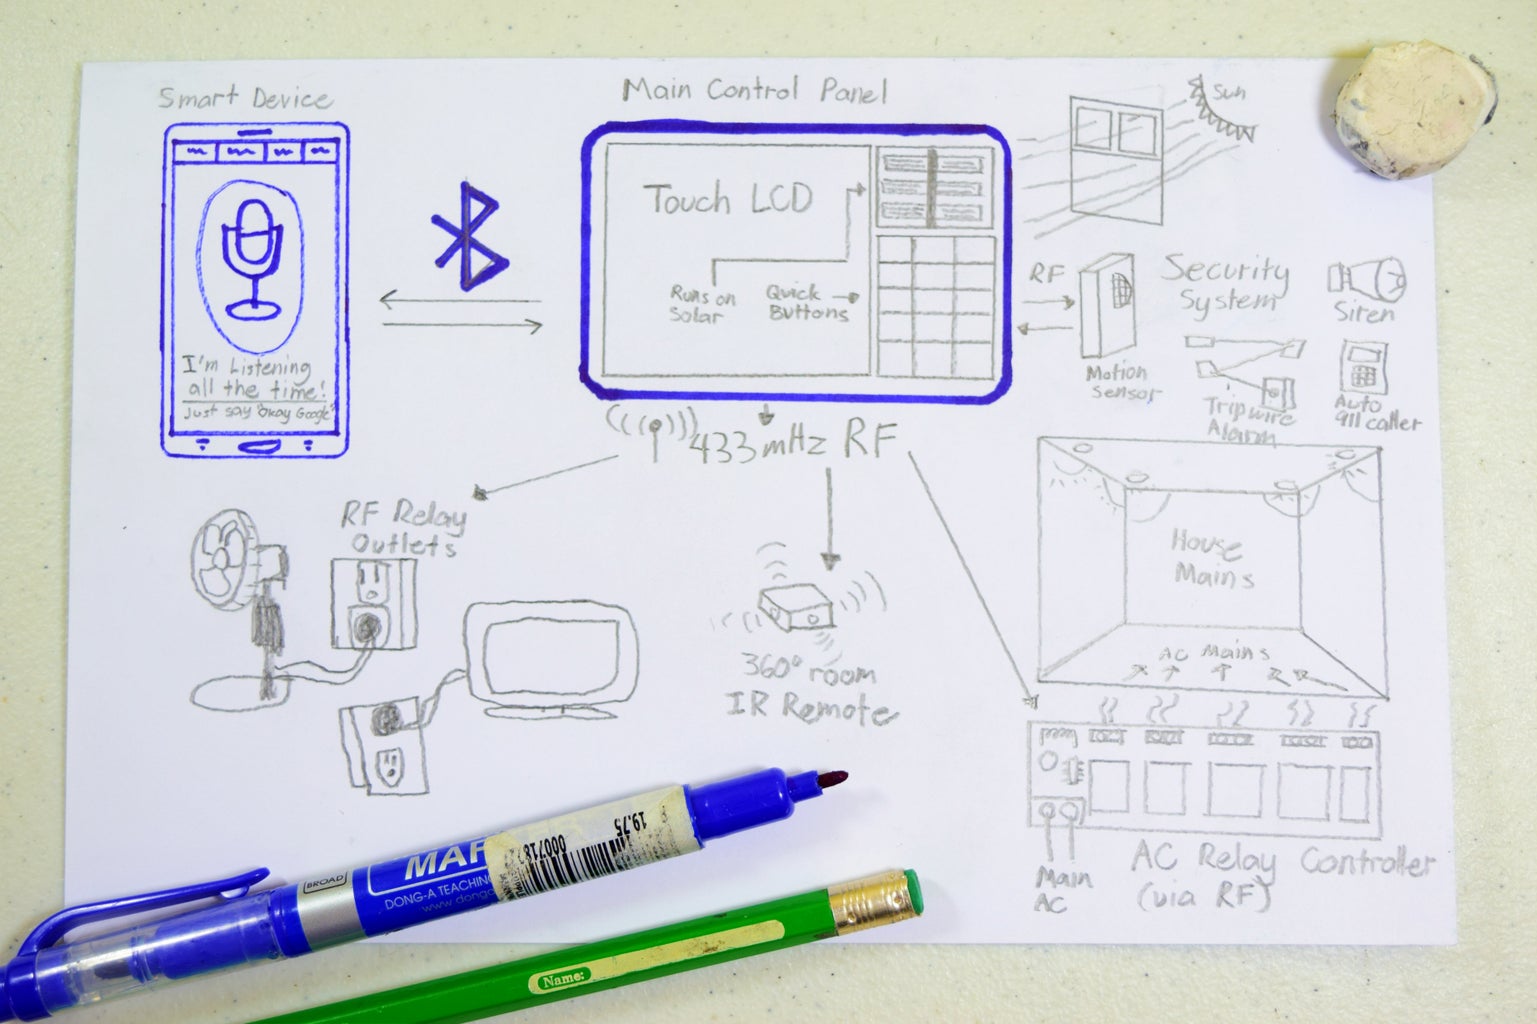 Smart Device
Main Control Panel
Sun
Touch LCD
Runs on
Solar
Quick
Buttons
RF
Security
System
Siren
Motion
Sensor
Tripwire
Alarm
Auto
911 caller
I'm Listening
all the time!
Just say "Okay Google"
433mHz RF
RF Relay
Outlets
House
Mains
AC Mains
360° room
IR Remote
Main
AC
AC Relay Controller
(via RF)
19.75
BROAD
MAR
DONG-A TEACHING
www.dong
Name: